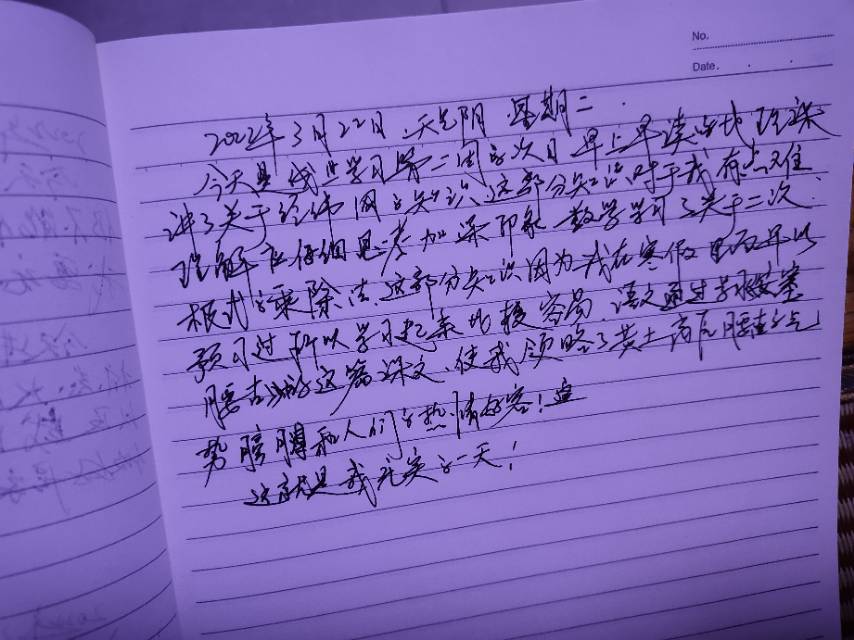 No.
Date.
2022年3月22日 天气阴 星期二.
今天是线上学习第二周的次日 早上早读的地理课
讲了关于经纬网的知识,这部分知识对于我有点难
理解 应仔细思考加深印象 数学学习了关于二次
根式的乘除法.这部分知识因为我在寒假里
预习过所以学习起来比较容易.语文通过学习安塞
腰鼓 这篇课文,使我领略了黄土高原腰鼓的气
势磅礴和人们的热情好客!
这就是我充实的一天!